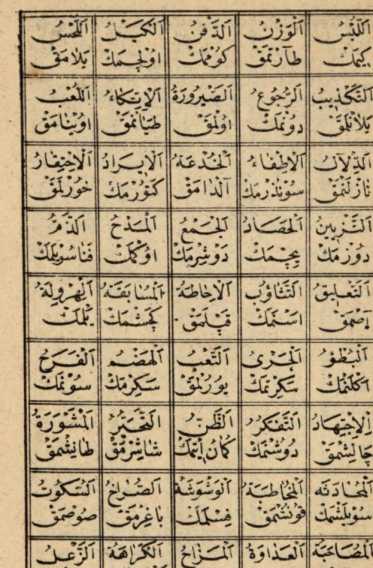 اَللُّبْسُ اَلْوَزْنُ اَلدَّفْنُ اَلْكَيْلُ اَللَّحْسُ
كِيمَكْ طَارْتمَقْ كُومْمَكْ اُولْچمَكْ يَلَامَقْ
اَلتَّكْذِيبُ اَلرُّجُوعُ اَلصَّيْرُورَةُ اَلْاِتِّكَاءُ اَللَّعْبُ
يَلَانْلَمَقْ دُونْمَكْ اُولْمَقْ طَيَانْمَقْ اُوينَامَقْ
اَلْاِطْفَاءُ اَلْخُدْعَةُ اَلْاِيرَادُ اَلْاِحْتِقَارُ
نَازْلَنْمَقْ سُوينْدُرْمَكْ اَلْدَامَقْ كَتُورْمَكْ خُورْلَمَقْ
اَلتَّزْيِينُ اَلْحَصَادُ اَلْجَمْعُ اَلْمَدْحُ اَلذَّمُّ
دُوزْمَكْ بِچْمَكْ دَوْشِرْمَكْ اُوكْمَكْ فَنَاسُويْلَمَكْ
اَلتَّعْلِيقُ اَلتَّثَاؤُبُ اَلْاِحَاطَةُ اَلْمُسَابَقَةُ اَلْهَرْوَلَةُ
اَصْمَقْ اَسْنَمَكْ قَپْلَمَقْ كَچِشْمَكْ يَلْمَكْ
اَلْبُطْؤُ اَلْجَرْىُ اَلتَّعَبُ اَلْهَضْمُ اَلْفَرَحُ
اَكْلَنْمَكْ سَكِرْتمَكْ يُورُلْمَقْ سَكِرْمَكْ سُونْمَكْ
اَلْاِجْتِهَادُ اَلتَّفَكُّرُ اَلظَّنُّ اَلتَّحَيُّرُ اَلْمَشْوَرَةُ
چَالِشْمَقْ دُوشُنْمَكْ كُمَانْ اِيتْمَكْ شَاشِرْمَقْ طَانِشْمَقْ
اَلْمُحَادَثَه اَلْمُخَاطَبَةُ اَلْوَشْوَشَةُ اَلصُّرَاخُ اَلسُّكُوتُ
سُويْلَشْمَكْ قُونُشْمَقْ فِسْلَمَكْ بَاغِرْمَقْ صُوصْمَقْ
اَلْمُصَاحَبَةُ اَلْعَدَاوَةُ اَلْمِزَاحُ اَلْكَرَاهَةُ اَلزَّعَلُ